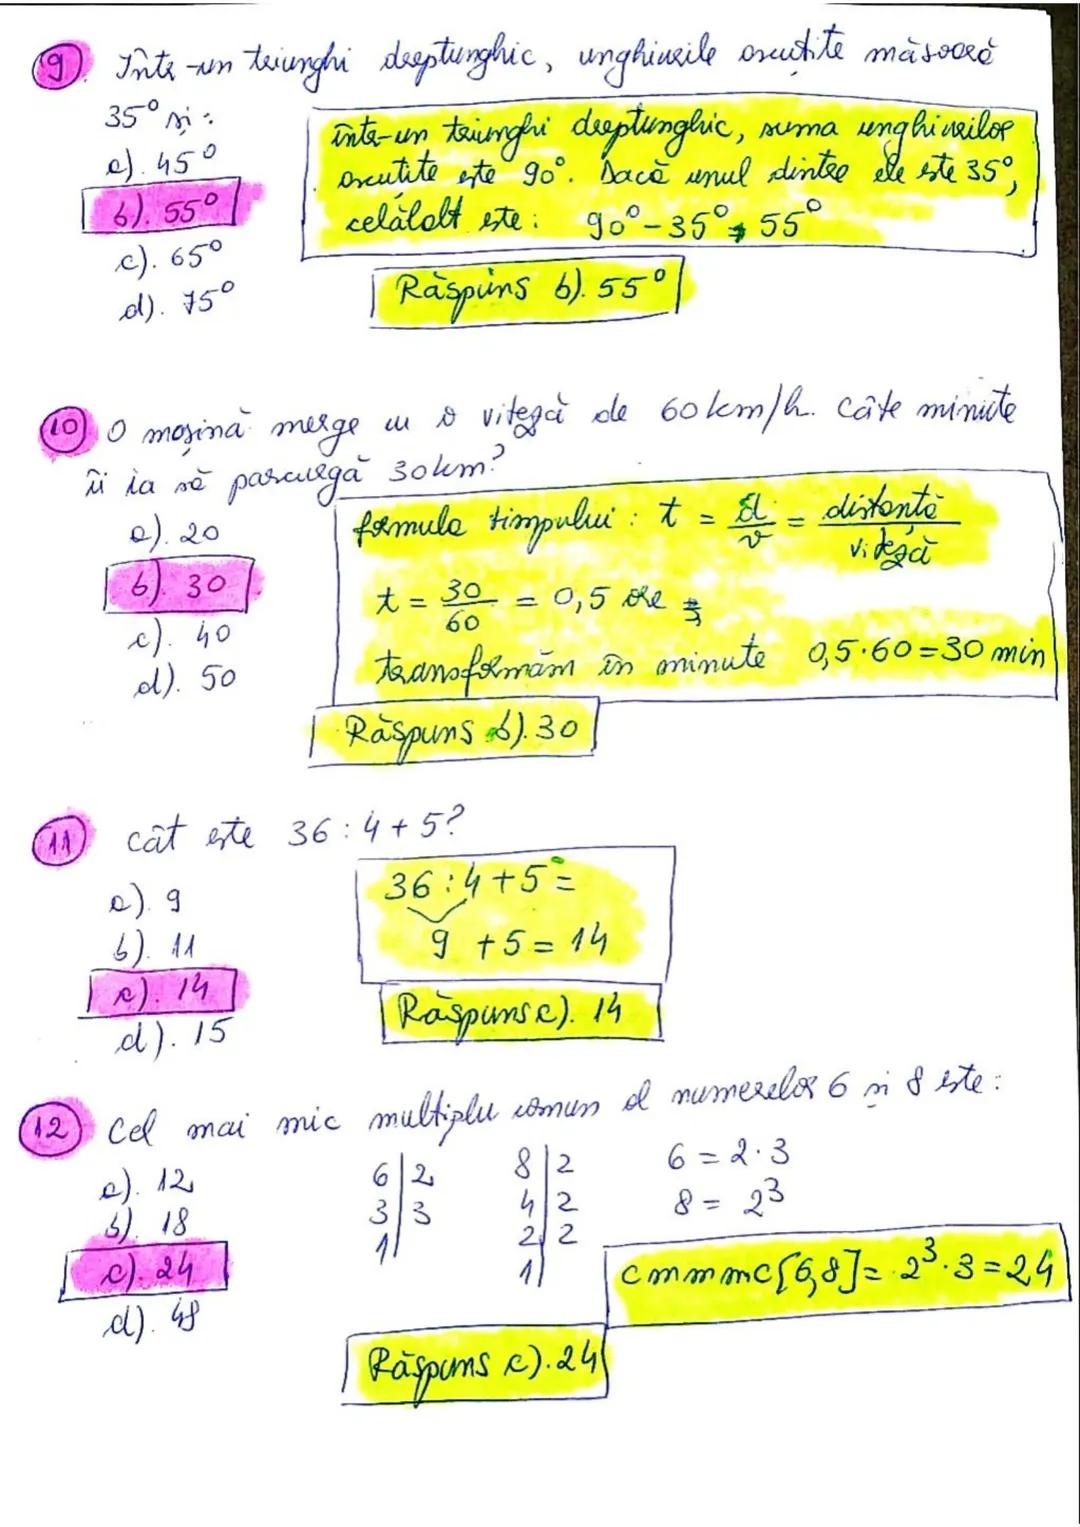 9). Într-un triunghi dreptunghic, unghiurile ascuțite măsoară
35° și:
a). 45°
b). 55°
c). 65°
d). 75°
într-un triunghi dreptunghic, suma unghiurilor
ascuțite este 90°. Dacă unul dintre ele este 35°,
celălalt este: 90° - 35° = 55°
Răspuns b). 55°
10) O mașină merge cu o viteză de 60 km/h. Câte minute
îi ia să parcurgă 30 km?
a). 20
b). 30
c). 40
d). 50
formula timpului: t = d/v = distanță/viteză
t = 30/60 = 0,5 ore
transformăm în minute 0,5·60=30 min
Răspuns b). 30
11) Cât este 36:4+5?
a). 9
b). 11
c). 14
d). 15
36:4+5=
9 +5= 14
Răspuns c). 14
12) Cel mai mic multiplu comun al numerelor 6 și 8 este:
a). 12
b). 18
c). 24
d). 48
6|2 8|2 6 = 2·3
3|3 4|2 8 = 2³
1| 2|2
1|
cmmmc[6,8]= 2³·3=24
Răspuns c). 24